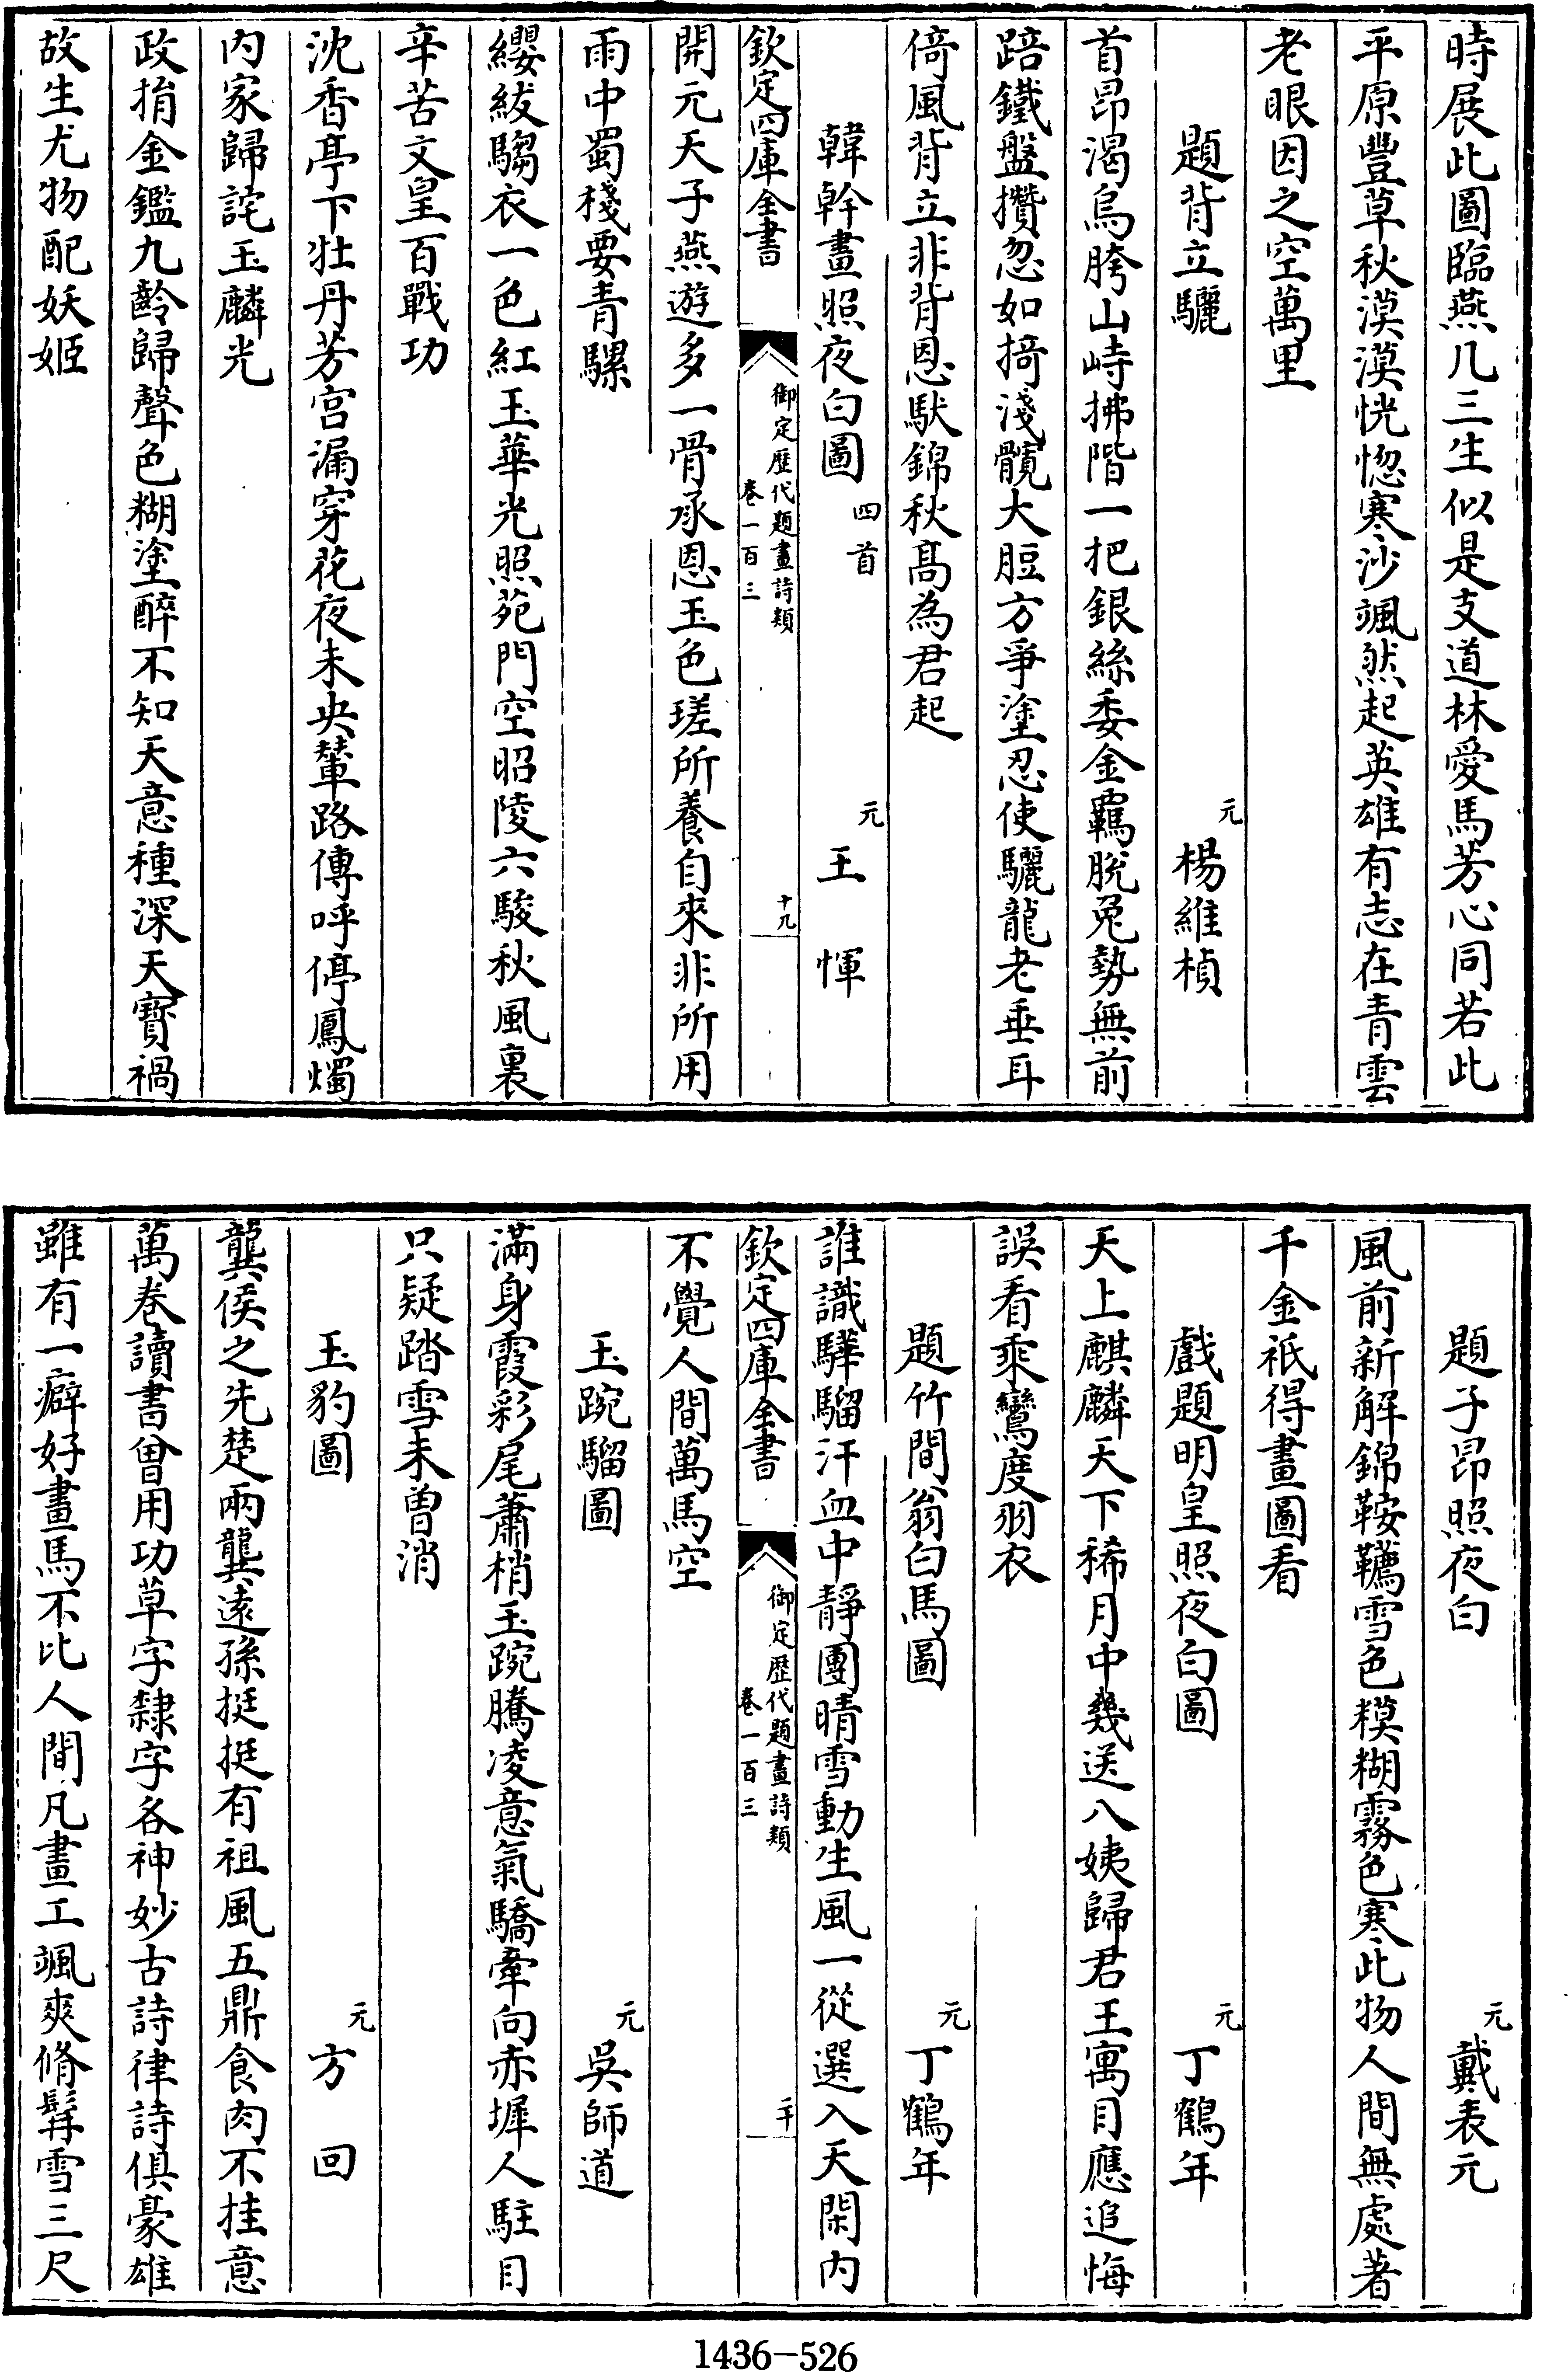 時展此圖臨燕几三生似是支道林愛馬芳心同若此
平原豐草秋漠漠恍惚寒沙颯然起英雄有志在青雲
老眼因之空萬里
題背立驪 元 楊維楨
首昂渴烏胯山峙拂階一把銀絲委金覊脫兎勢無前
踣鐵盤攢忽如掎淺髖大脰方爭塗忍使驪龍老垂耳
倚風背立非背恩馱錦秋高為君起
韓幹畫照夜白圖 四首 元 王惲
欽定四庫全書 御定歷代題畫詩類 卷一百三 十九
開元天子燕遊多一骨承恩玉色瑳所養自來非所用
雨中蜀棧要青騾
纓紱騶衣一色紅玉華光照苑門空昭陵六駿秋風裏
辛苦文皇百戰功
沈香亭下牡丹芳宫漏穿花夜未央輦路傳呼停鳳燭
内家歸詫玉麟光
政捐金鑑九齡歸聲色糊塗醉不知天意種深天寶禍
故生尤物配妖姬
題子昂照夜白 元 戴表元
風前新解錦鞍韉雪色糢糊霧色寒此物人間無處著
千金祇得畫圖看
戲題明皇照夜白圖 元 丁鶴年
天上麒麟天下稀月中幾送八姨歸君王寓目應追悔
誤看乘鸞度羽衣
題竹間翁白馬圖 元 丁鶴年
誰識驊騮汗血中靜團晴雪動生風一從選入天閑内
欽定四庫全書 御定歷代題畫詩類 卷一百三 二十
不覺人間萬馬空
玉踠騮圖 元 吳師道
滿身霞彩尾蕭梢玉踠騰凌意氣驕牽向赤墀人駐目
只疑踏雪未曾消
玉豹圖 元 方回
龔侯之先楚兩龔遠孫挺挺有祖風五鼎食肉不挂意
萬卷讀書曾用功草字隸字各神妙古詩律詩俱豪雄
雖有一癖好畫馬不比人間凡畫工颯爽脩髯雪三尺
1436-526